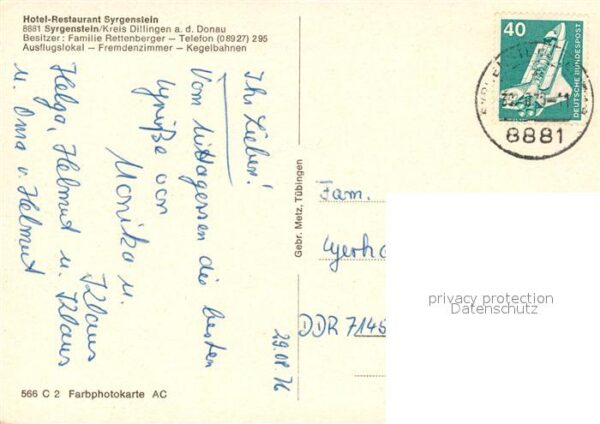 Hotel-Restaurant Syrgenstein
8881 Syrgenstein/Kreis Dillingen a. d. Donau
Besitzer: Familie Rettenberger – Telefon (08927) 295
Ausflugslokal – Fremdenzimmer – Kegelbahnen
Ihr Lieben!
Vom Mittagessen die besten
Grüße von
Monika u.
Klaus
Helga, Helmut u. Klaus
u. Oma v. Helmut
29.08.76
566 C 2 Farbphotokarte AC
Gebr. Metz, Tübingen
40
DEUTSCHE BUNDESPOST
8881
Fam.
Gerha
DDR 7145
privacy protection
Datenschutz